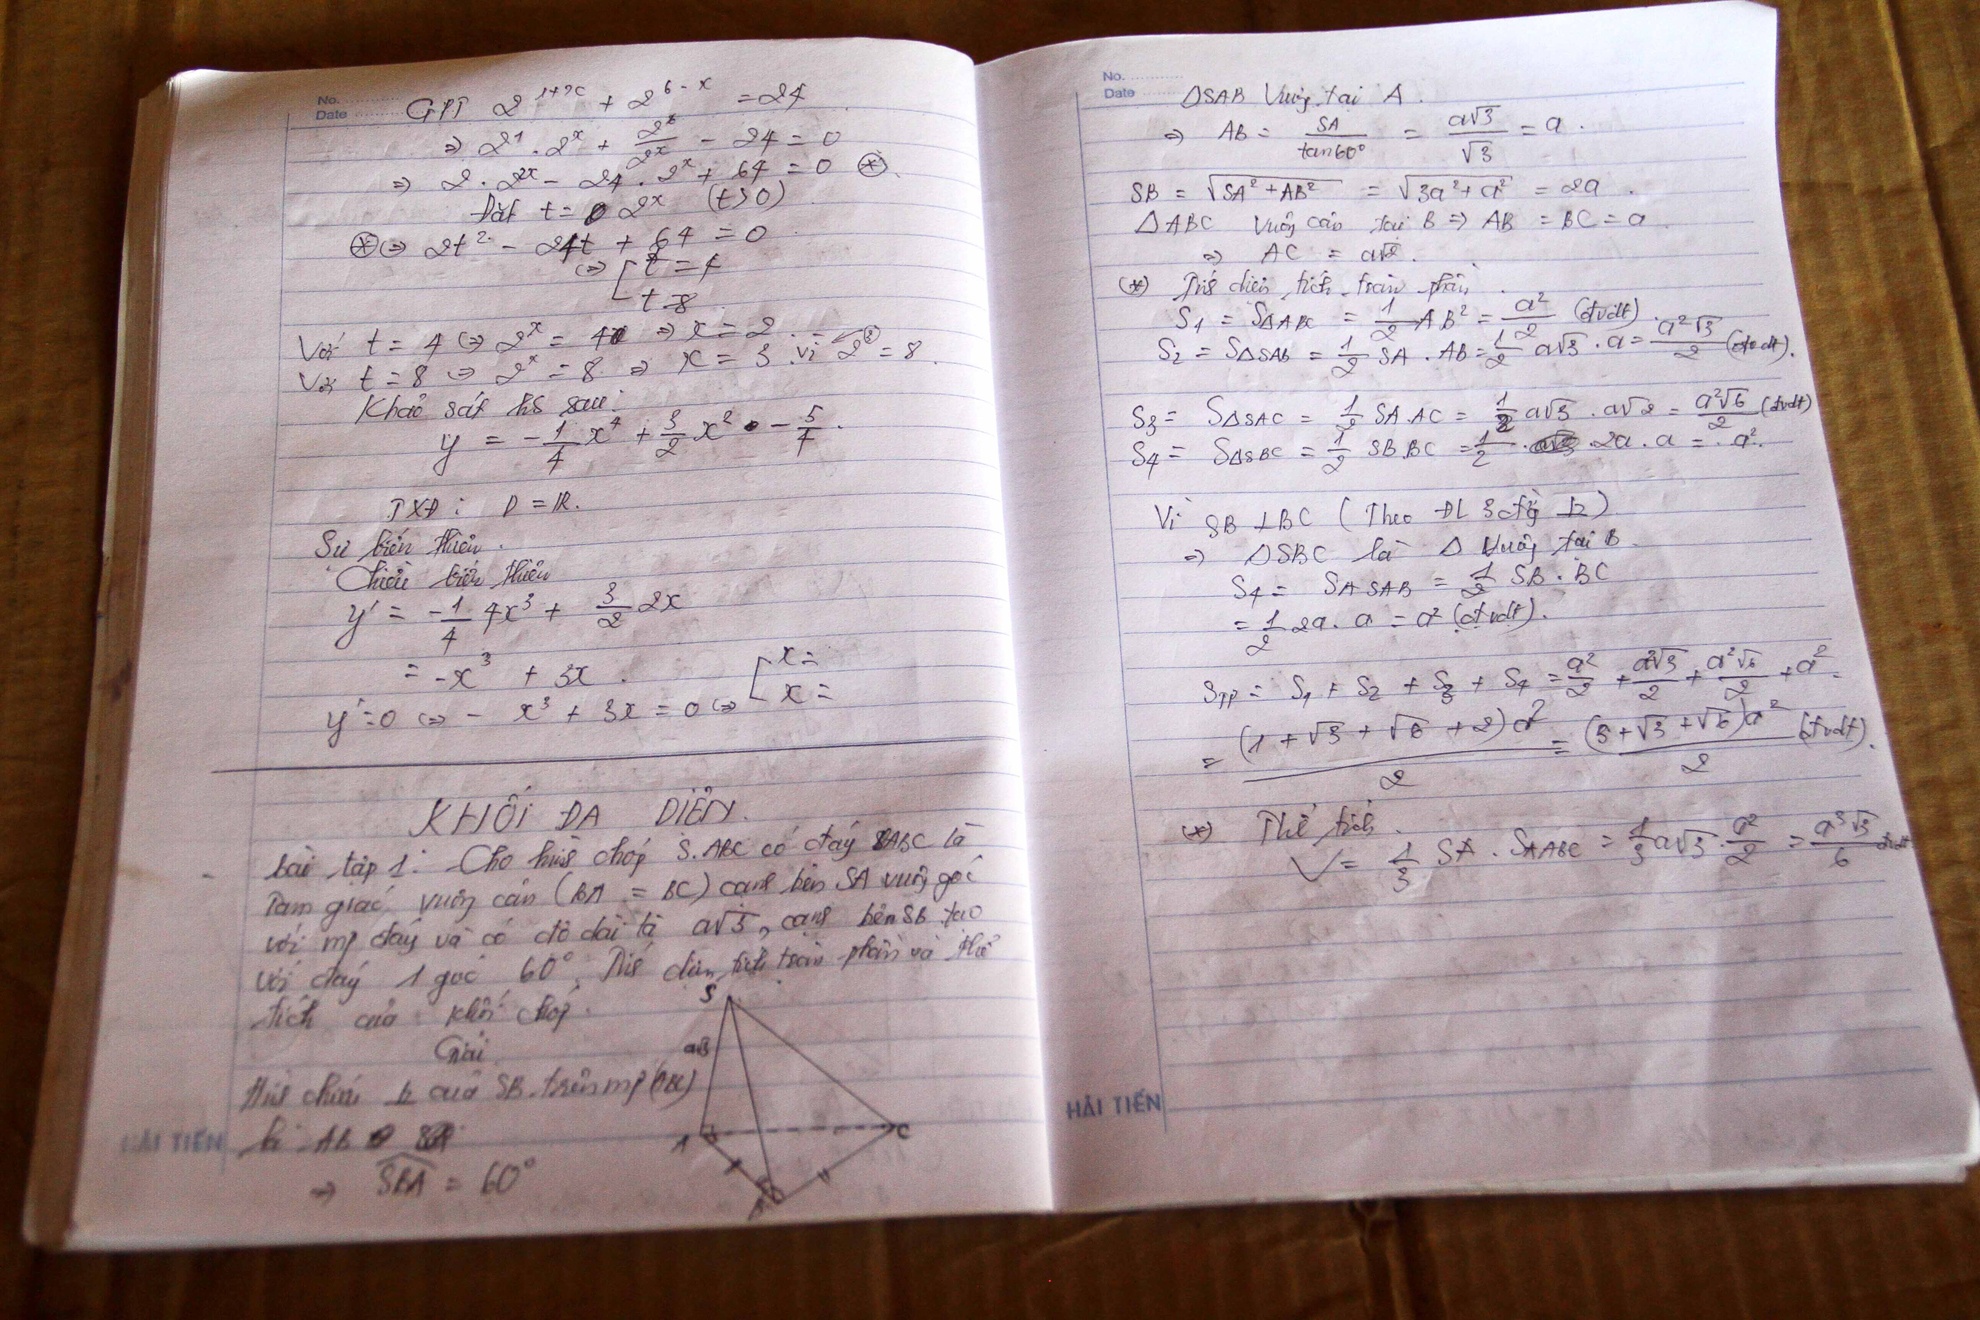 No.
Date
GPT 2^{1+x} + 2^{6-x} = 24
⇒ 2^1 . 2^x + 2^6/2^x - 24 = 0
⇒ 2 . 2^{2x} - 24 . 2^x + 64 = 0 (*).
Đặt t = 2^x (t>0)
(*) ⇔ 2t^2 - 24t + 64 = 0
⇔ [ t = 4
t = 8
Với t = 4 ⇔ 2^x = 4 ⇒ x = 2.
Với t = 8 ⇔ 2^x = 8 ⇒ x = 3 vì 2^3 = 8.
Khảo sát hs sau:
y = -1/4 x^4 + 3/2 x^2 - 5/4.
TXĐ: D = R.
Sự biến thiên.
Chiều biến thiên
y' = -1/4 4x^3 + 3/2 2x
= -x^3 + 3x.
y' = 0 ⇔ - x^3 + 3x = 0 ⇔ [ x =
x =
KHỐI ĐA DIỆN.
bài tập 1: Cho hình chóp S.ABC có đáy ABC là
Tam giác vuông cân (BA = BC) cạnh bên SA vuông góc
với mp đáy và có độ dài là a√3, cạnh bên SB tạo
với đáy 1 góc 60°. Tính diện tích toàn phần và thể
tích của khối chóp.
Giải
S
a√3
A
B
C
Hình chiếu ⊥ của SB trên mp (ABC)
là AB
⇒ SBA = 60°
HẢI TIẾN
No.
Date
ΔSAB Vuông tại A.
⇒ AB = SA/tan60° = a√3/√3 = a.
SB = √(SA^2 + AB^2) = √(3a^2 + a^2) = 2a.
ΔABC Vuông cân tại B ⇒ AB = BC = a
⇒ AC = a√2.
(*) Tính diện tích toàn phần.
S1 = SΔABC = 1/2 AB^2 = a^2/2 (đvdt)
S2 = SΔSAB = 1/2 SA . AB = 1/2 a√3 . a = a^2√3/2 (đvdt).
S3 = SΔSAC = 1/2 SA.AC = 1/2 a√3 . a√2 = a^2√6/2 (đvdt)
S4 = SΔSBC = 1/2 SB.BC = 1/2 . 2a . a = a^2.
Vì SB ⊥ BC (Theo ĐL 3 đg ⊥)
⇒ ΔSBC là Δ Vuông tại B.
S4 = SΔSAB = 1/2 SB . BC
= 1/2 2a . a = a^2 (đvdt).
STP = S1 + S2 + S3 + S4 = a^2/2 + a^2√3/2 + a^2√6/2 + a^2
= (1 + √3 + √6 + 2)a^2/2 = (3 + √3 + √6)a^2/2 (đvdt).
(*) Thể tích.
V = 1/3 SA . SΔABC = 1/3 a√3 . a^2/2 = a^3√3/6 đvdt
HẢI TIẾN